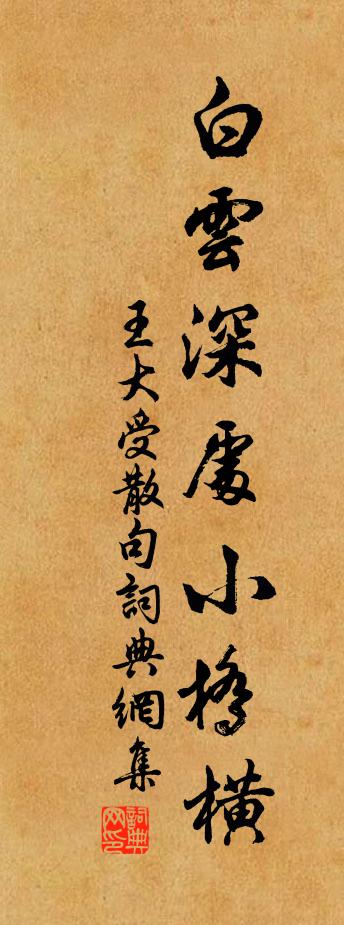 白雲深處小橋橫
王大受散句詞典網集
詞典网印